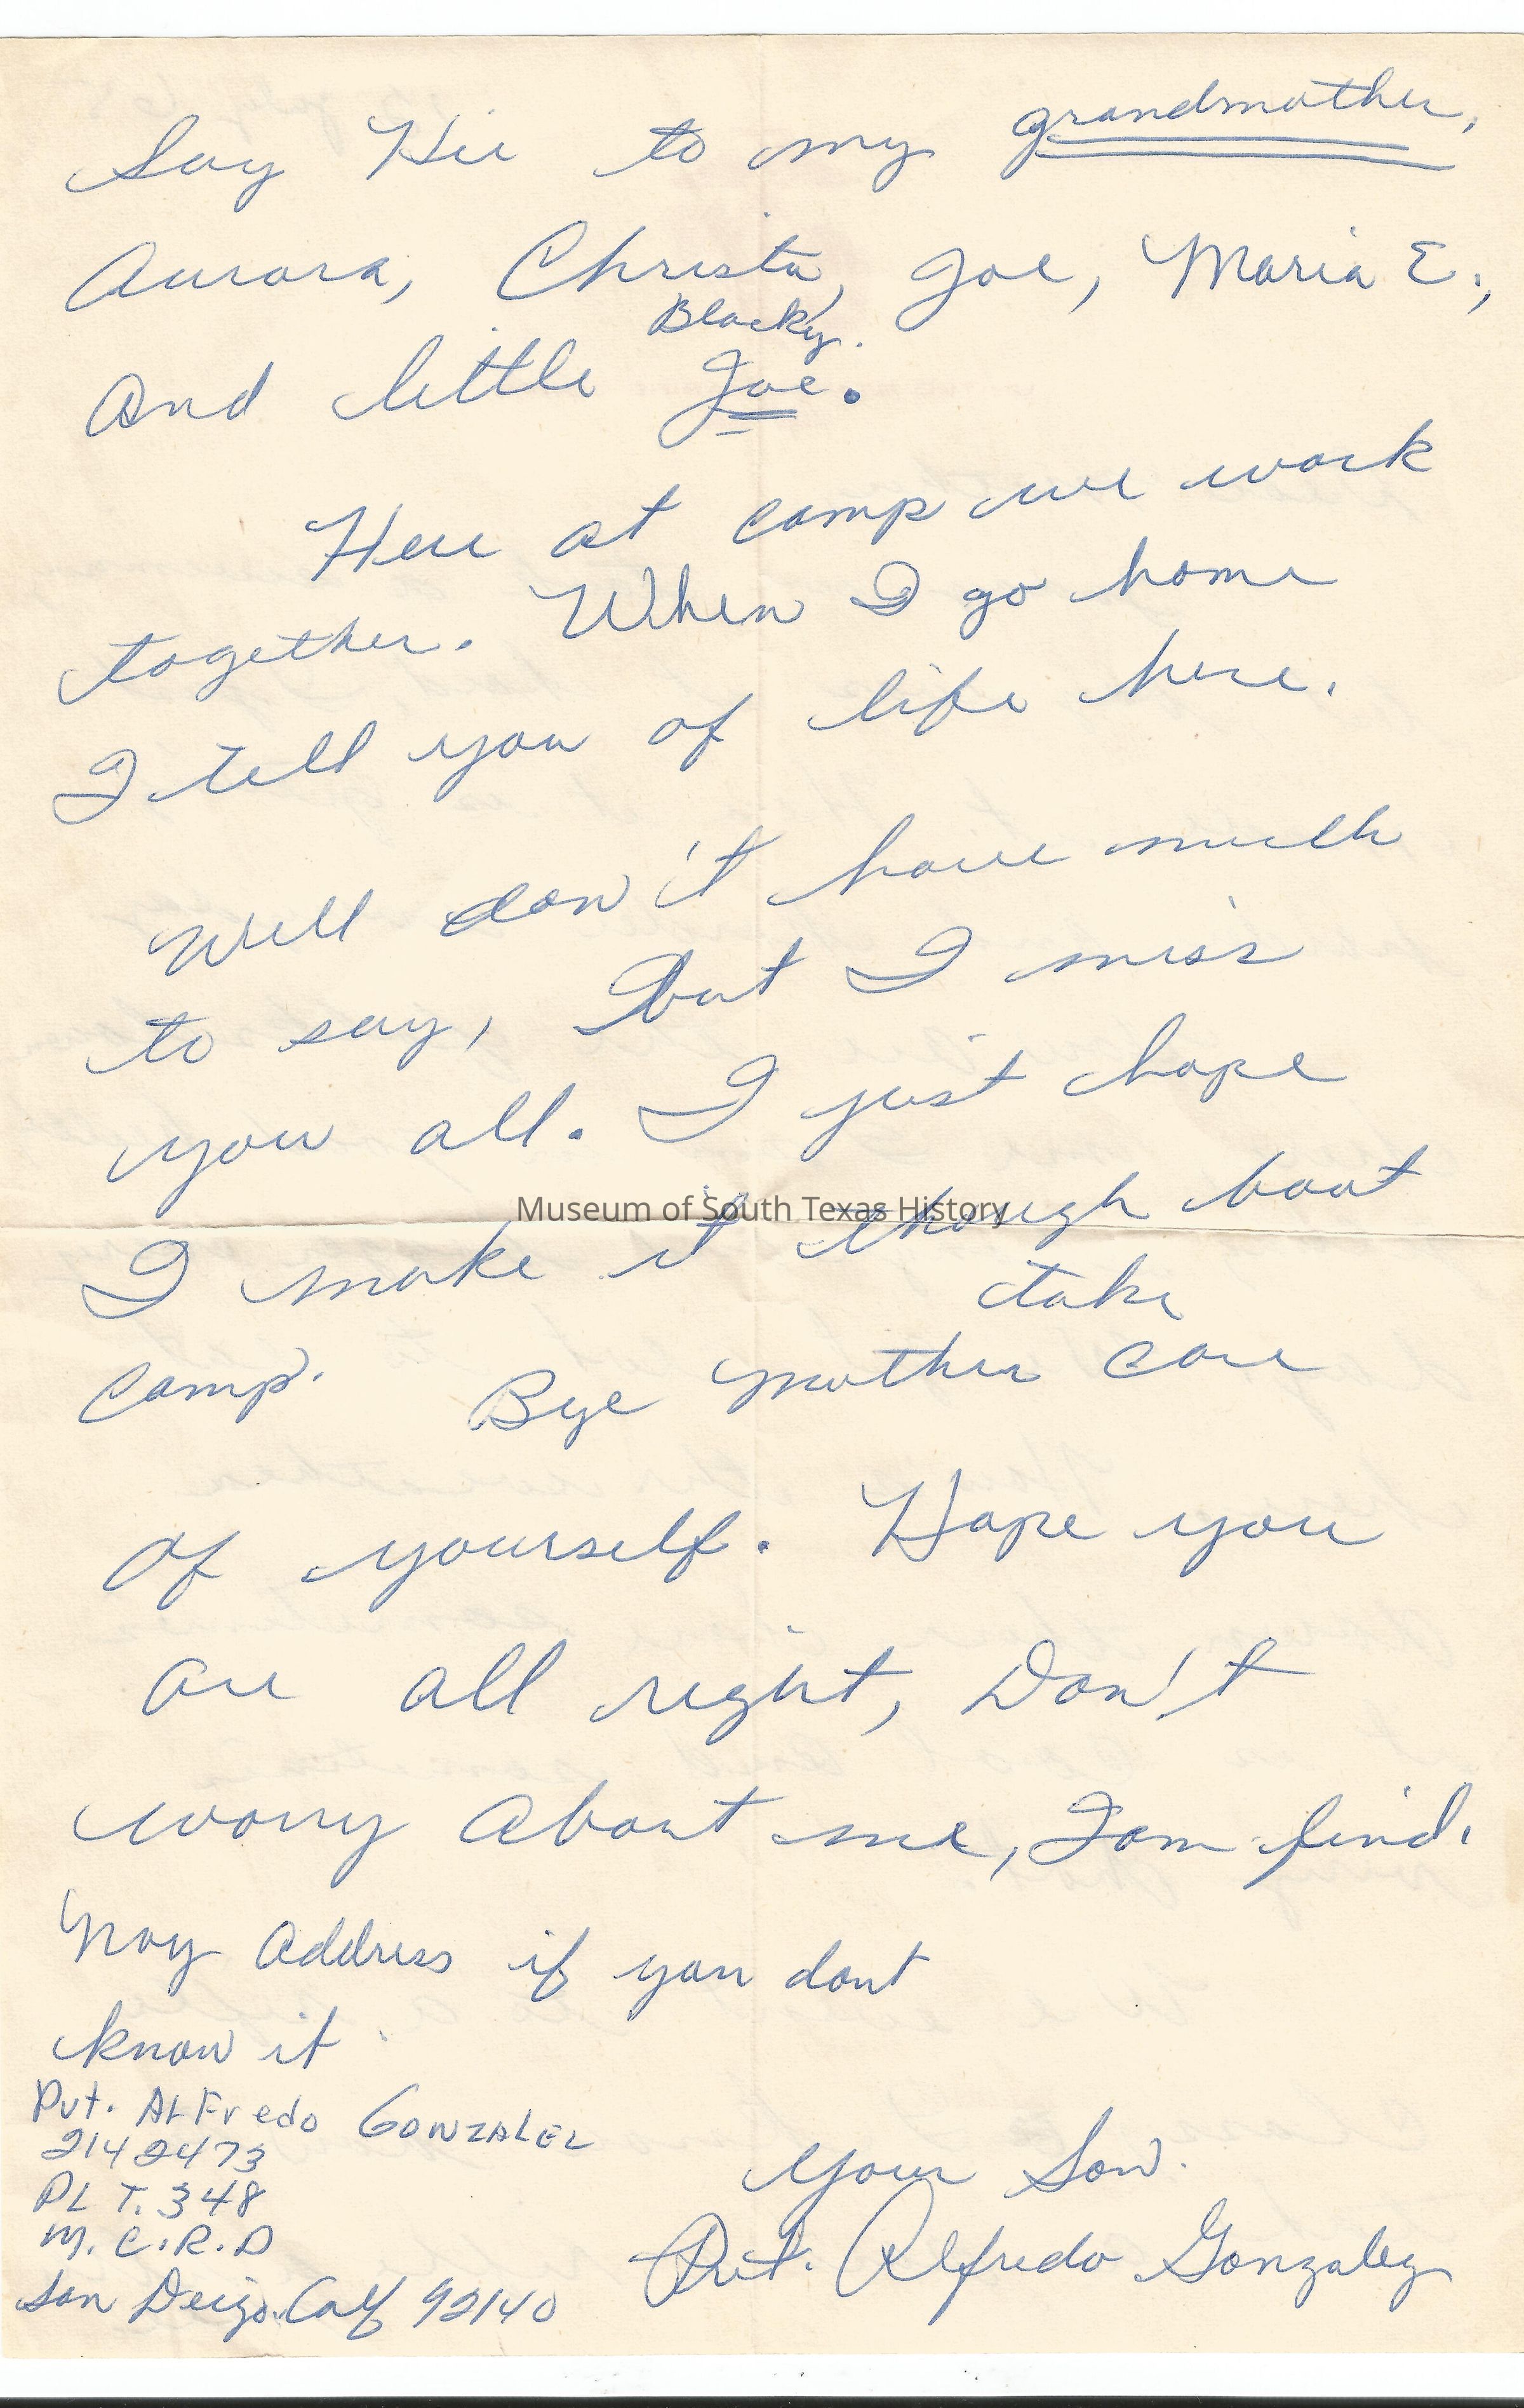 Say Hii to my grandmother,
Aurora, Christa, Joe, Maria E.,
Blacky.
And little Joe.
Here at camp we work
together. When I go home
I tell you of life here.
Well don't have much
to say, but I miss
you all. I just hope
I make it though boot
take
camp. Bye mother care
of yourself. Hope you
are all right, Don't
worry About me, I am find.
May Address if you dont
know it
Pvt. ALFredo GONZALEZ
2142473
PLT. 348
M.C.R.D
San Deigo. Calf 92140
your Son.
Pvt. Alfredo Gonzalez
Museum of South Texas History